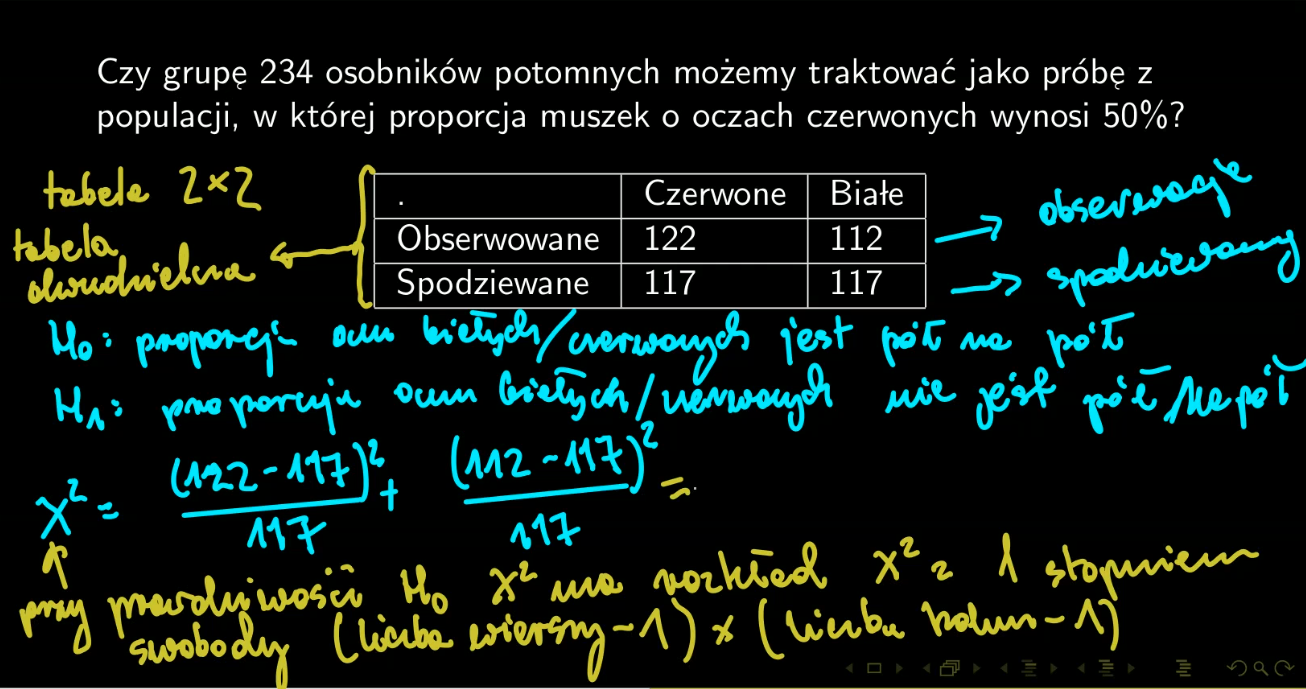 Czy grupę 234 osobników potomnych możemy traktować jako próbę z
populacji, w której proporcja muszek o oczach czerwonych wynosi 50%?
tabele 2×2
tabela
. Czerwone Białe
Obserwowane 122 112
Spodziewane 117 117
obserwacje
spodziewany
H₀: proporcje oczu białych/czerwonych jest pół na pół
H₁: proporcje oczu białych/czerwonych nie jest pół/na pół
X² = (122-117)²/117 + (112-117)²/117 =
przy prawdziwości H₀ X² ma rozkład X² z 1 stopniem
swobody (liczba wierszy-1) × (liczba kolumn-1)